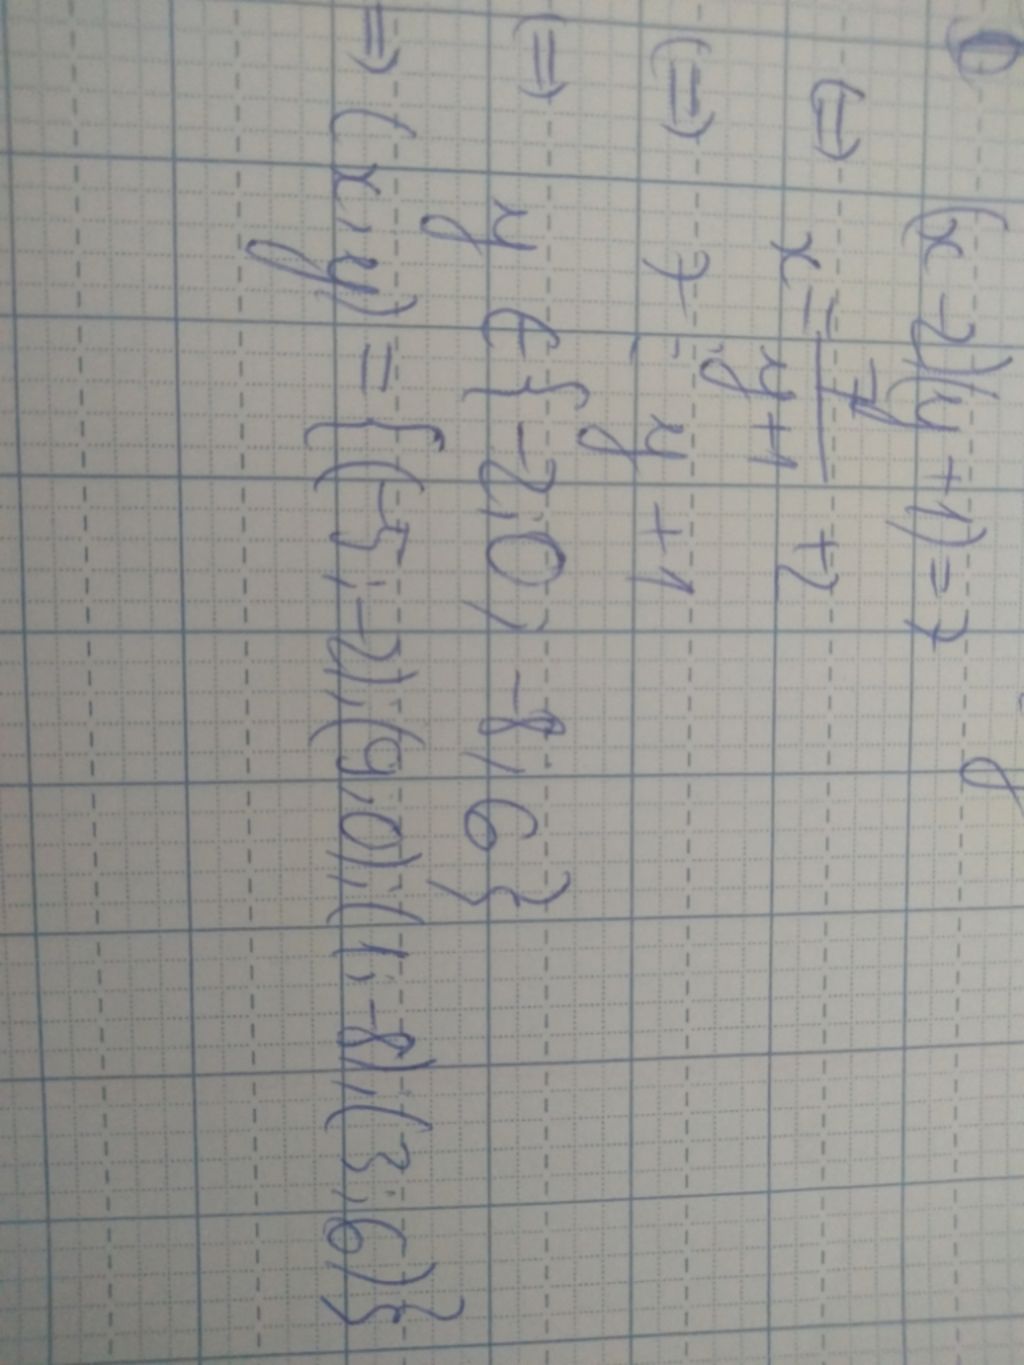 (x-2)(y+1)=7
⇔ x = 7/(y+1) + 2
⇔ 7 ⋮ y+1
⇔ y ∈ {-2, 0, -8, 6}
⇒ (x, y) = {(-5; -2), (9, 0), (1, -8), (3, 6)}